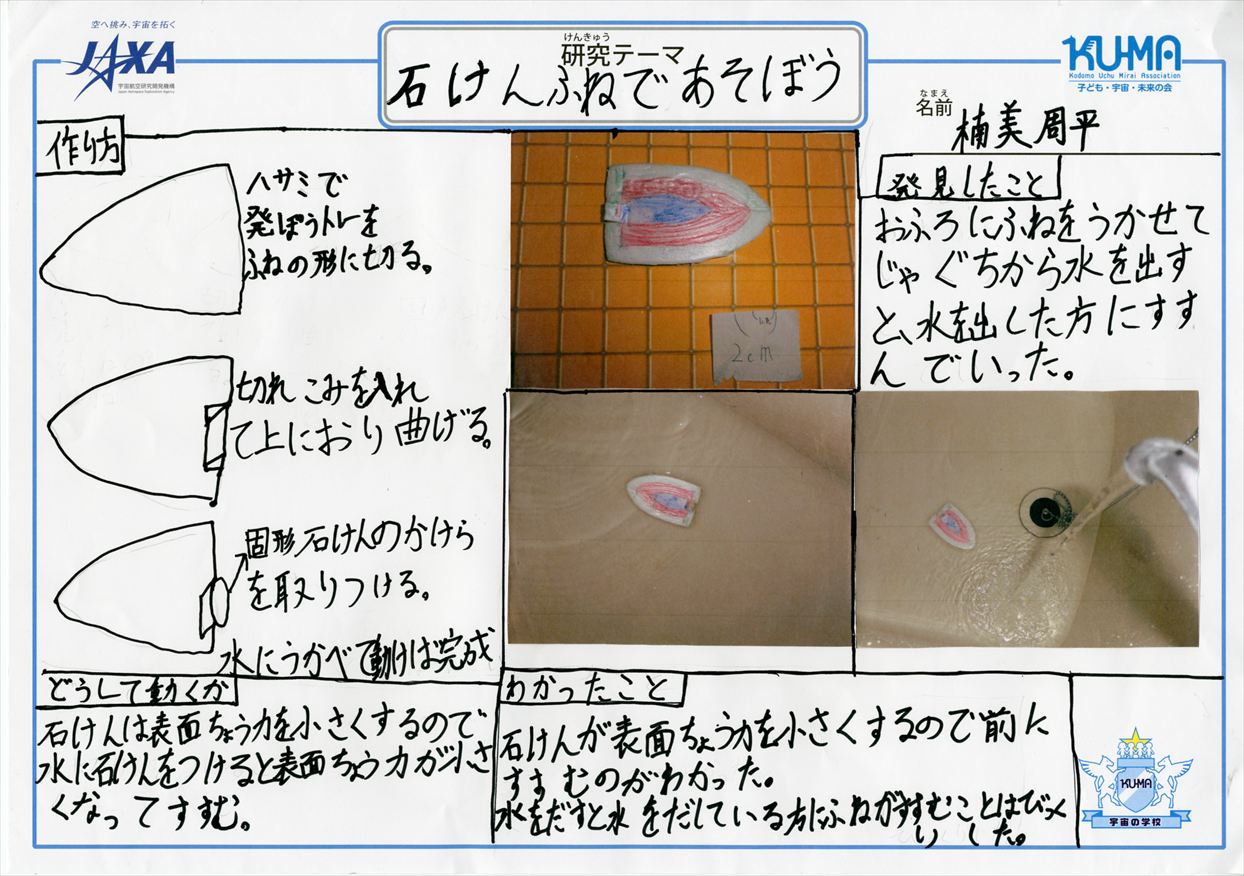 空へ挑み、宇宙を拓く
JAXA
宇宙航空研究開発機構
Japan Aerospace Exploration Agency
けんきゅう
研究テーマ
石けんふねであそぼう
KU-MA
Kodomo Uchu Mirai Association
子ども・宇宙・未来の会
なまえ
名前
楠美周平
作り方
ハサミで
発ぽうトレーを
ふねの形に切る。
切れこみを入れ
て上におり曲げる。
固形石けんのかけら
を取りつける。
水にうかべて動けば完成
2cm
発見したこと
おふろにふねをうかせて
じゃぐちから水を出す
と、水を出した方にすす
んでいった。
どうして動くか
石けんは表面ちょう力を小さくするので
水に石けんをつけると表面ちょう力が小さ
くなってすすむ。
わかったこと
石けんが表面ちょう力を小さくするので前に
すすむのがわかった。
水をだすと水をだしている方にふねがすすむことはびっく
りした。
KU-MA
宇宙の学校